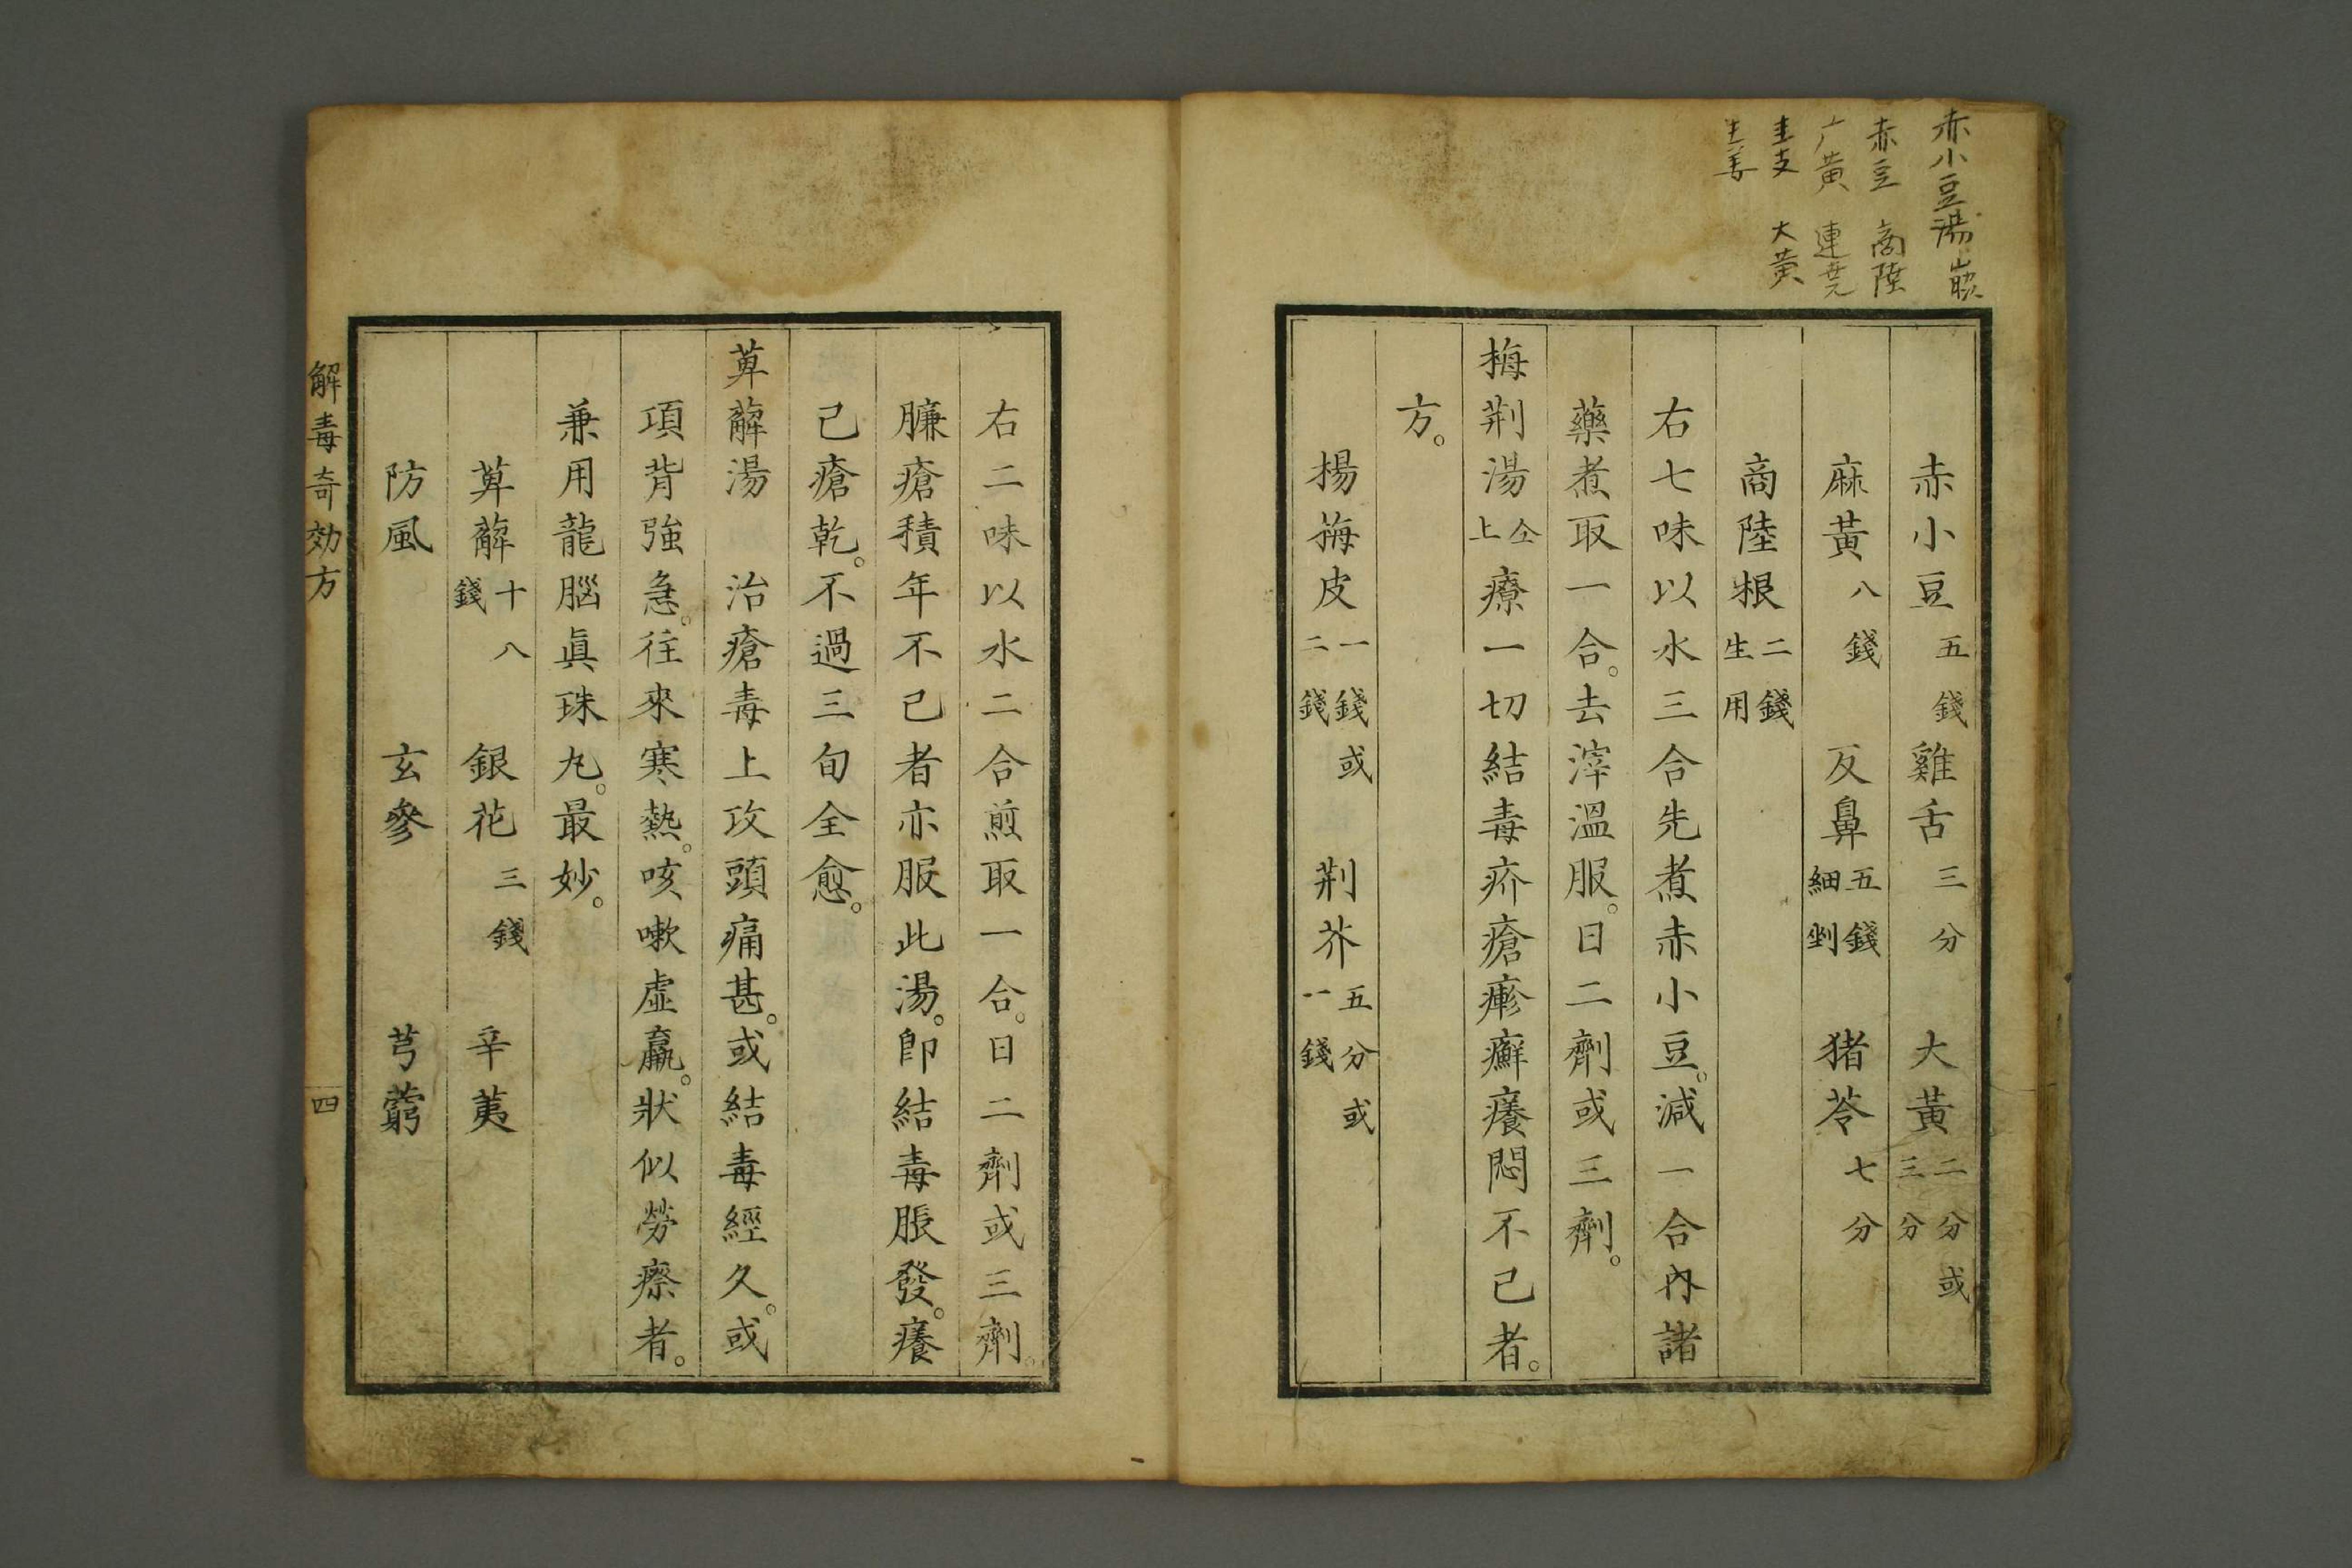 赤小豆湯
赤豆 商陸
黄 連
大黄
赤小豆五錢 雞舌三分 大黃二分或三分
麻黃八錢 反鼻五錢細剉 猪苓七分
商陸根二錢生用
右七味以水三合先煮赤小豆。減一合內諸
藥煮取一合。去滓溫服。日二劑或三劑。
梅荆湯仝上療一切結毒疥瘡瘮癬癢悶不已者。
方。
楊梅皮一錢或二錢 荆芥五分或一錢
右二味以水二合煎取一合。日二劑或三劑。
臁瘡積年不已者亦服此湯。卽結毒脹發。癢
已瘡乾。不過三旬全愈。
萆薢湯 治瘡毒上攻頭痛甚。或結毒經久。或
項背強急。往來寒熱。咳嗽虛羸。狀似勞瘵者。
兼用龍腦眞珠丸。最妙。
萆薢十八錢 銀花三錢 辛荑
防風 玄參 芎藭
解毒奇効方
四